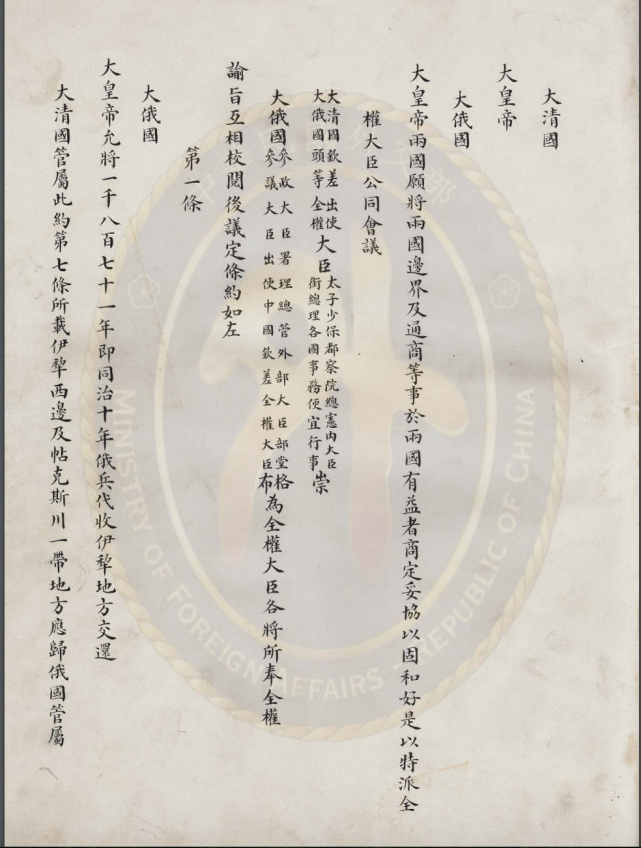 大清國
大皇帝
大俄國
大皇帝兩國願將兩國邊界及通商等事於兩國有益者商定妥協以固和好是以特派全
權大臣公同會議
大清國欽差出使
大俄國頭等全權
大臣
太子少保都察院總憲內大臣
銜總理各國事務便宜行事
崇
大俄國
參政大臣署理總管外部大臣部堂格
參議大臣出使中國欽差全權大臣布
為全權大臣各將所奉全權
諭旨互相校閱後議定條約如左
第一條
大俄國
大皇帝允將一千八百七十一年即同治十年俄兵代收伊犂地方交還
大清國管屬此約第七條所載伊犂西邊及帖克斯川一帶地方應歸俄國管屬
MINISTRY OF FOREIGN AFFAIRS REPUBLIC OF CHINA